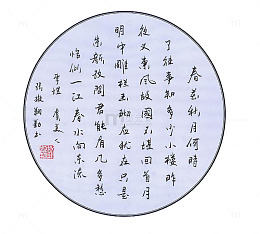 春花秋月何時
了往事知多少小樓昨
夜又東風故國不堪回首月
明中雕栏玉砌应犹在只是
朱颜改問君能有几多愁
恰似一江春水向东流
李煜 虞美人